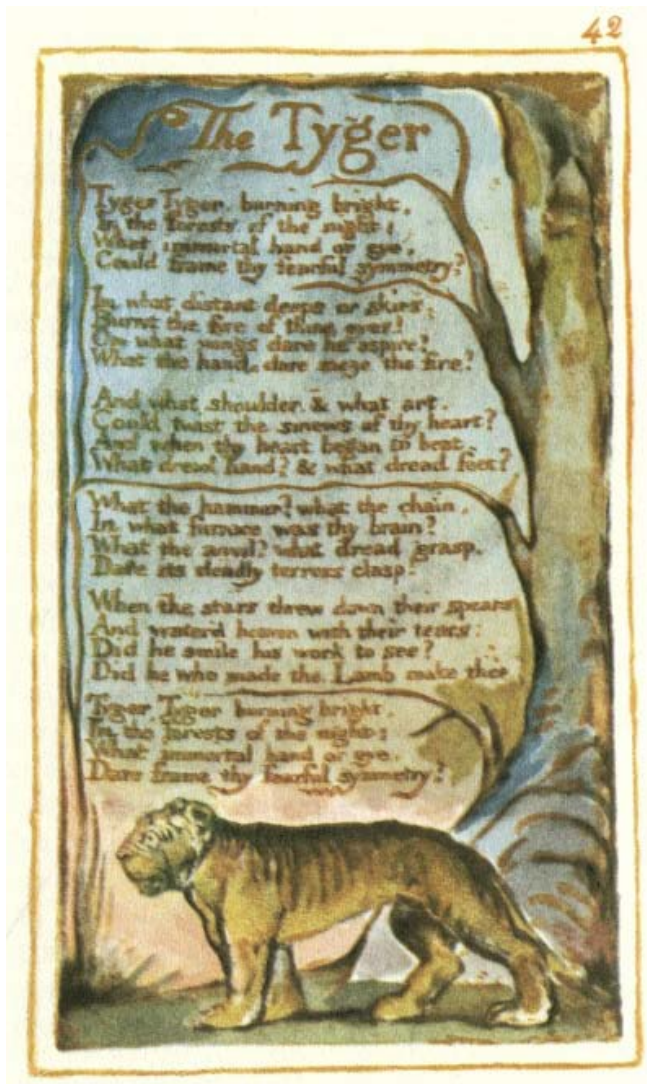 42
The Tyger
Tyger Tyger, burning bright,
In the forests of the night;
What immortal hand or eye,
Could frame thy fearful symmetry?
In what distant deeps or skies,
Burnt the fire of thine eyes?
On what wings dare he aspire?
What the hand, dare sieze the fire?
And what shoulder, & what art,
Could twist the sinews of thy heart?
And when thy heart began to beat,
What dread hand? & what dread feet?
What the hammer? what the chain,
In what furnace was thy brain?
What the anvil? what dread grasp,
Dare its deadly terrors clasp!
When the stars threw down their spears
And water'd heaven with their tears:
Did he smile his work to see?
Did he who made the Lamb make thee
Tyger Tyger burning bright,
In the forests of the night:
What immortal hand or eye,
Dare frame thy fearful symmetry?